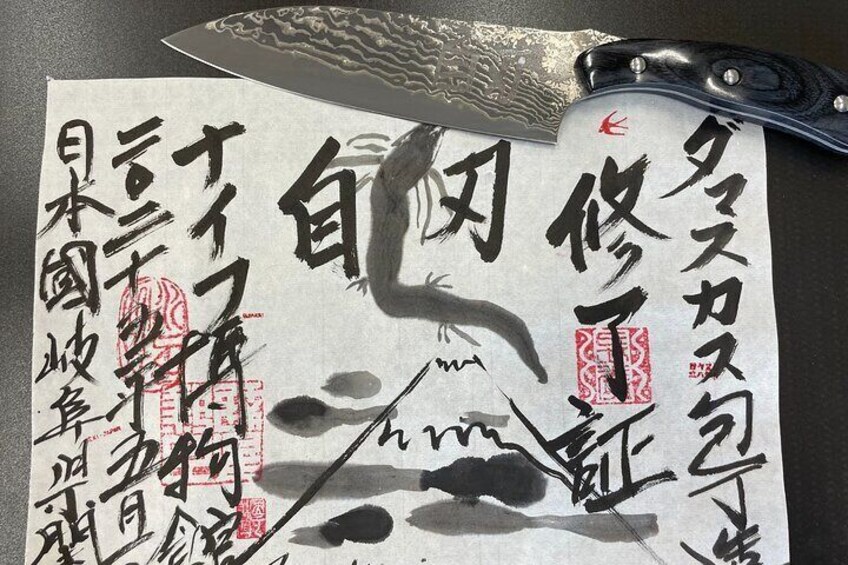 ダマスカス包丁造
修了証
自刃
ナイフ博物館
二〇二十年五月
日本國岐阜県関